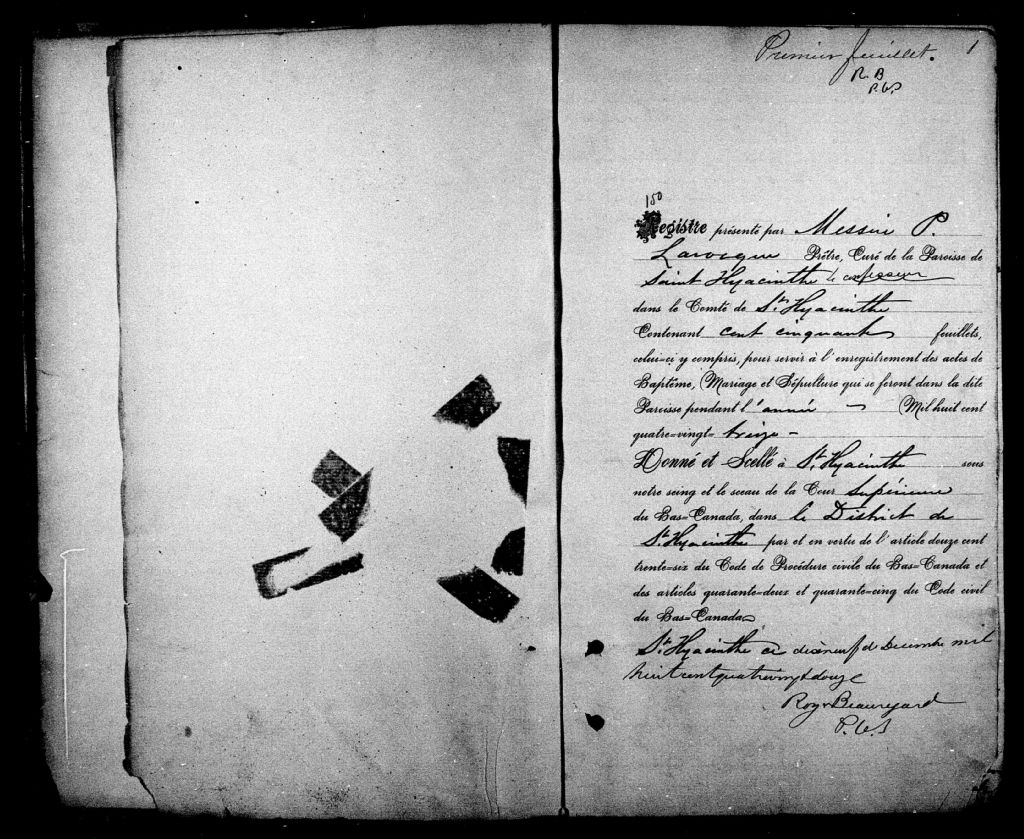 Premier feuillet. 1
R. B
P.C.S
150
Registre présenté par Messire P.
Larocque Prêtre, Curé de la Paroisse de
Saint Hyacinthe le confesseur
dans le Comté de St. Hyacinthe
Contenant cent cinquante feuillets,
celui-ci y compris, pour servir à l'enregistrement des actes de
Baptême, Mariage et Sépulture qui se feront dans la dite
Paroisse pendant l'année — Mil huit cent
quatre-vingt- treize -
Donné et Scellé à St. Hyacinthe sous
notre seing et le sceau de la Cour Supérieure
du Bas-Canada, dans le District de
St. Hyacinthe par et en vertu de l'article douze cent
trente-six du Code de Procédure civile du Bas-Canada et
des articles quarante-deux et quarante-cinq du Code civil
du Bas-Canada
St. Hyacinthe ce dixneuf de Decembre mil
huit cent quatrevingt douze
Roy & Beauregard
P.C.S